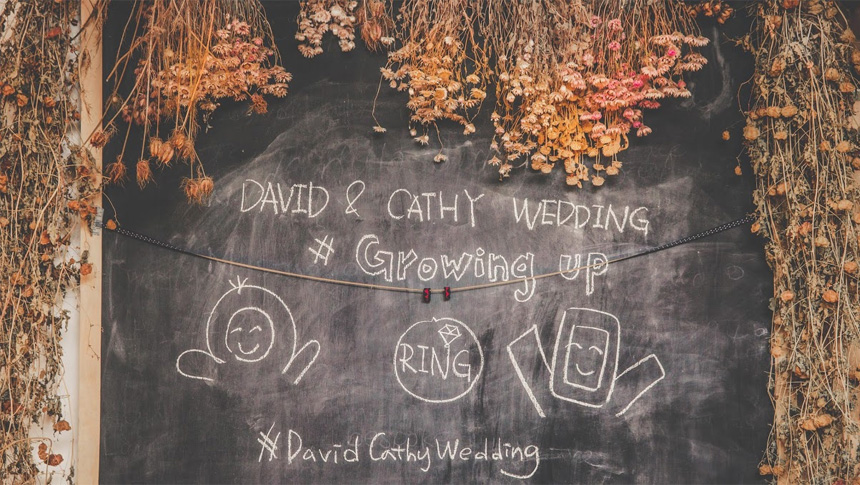 DAVID & CATHY WEDDING
# Growing up
RING
#David CathyWedding